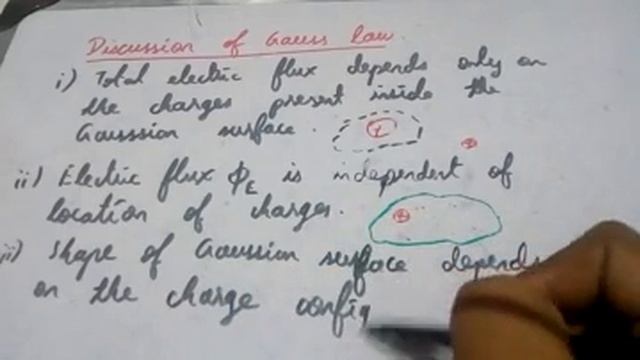 Discussion of Gauss law
i) Total electric flux depends only on
the charges present inside the
Gausssion surface.
+
+
ii) Electric flux ΦE is independent of
location of charges.
+
ii) Shape of Gaussian surface depends
on the charge config